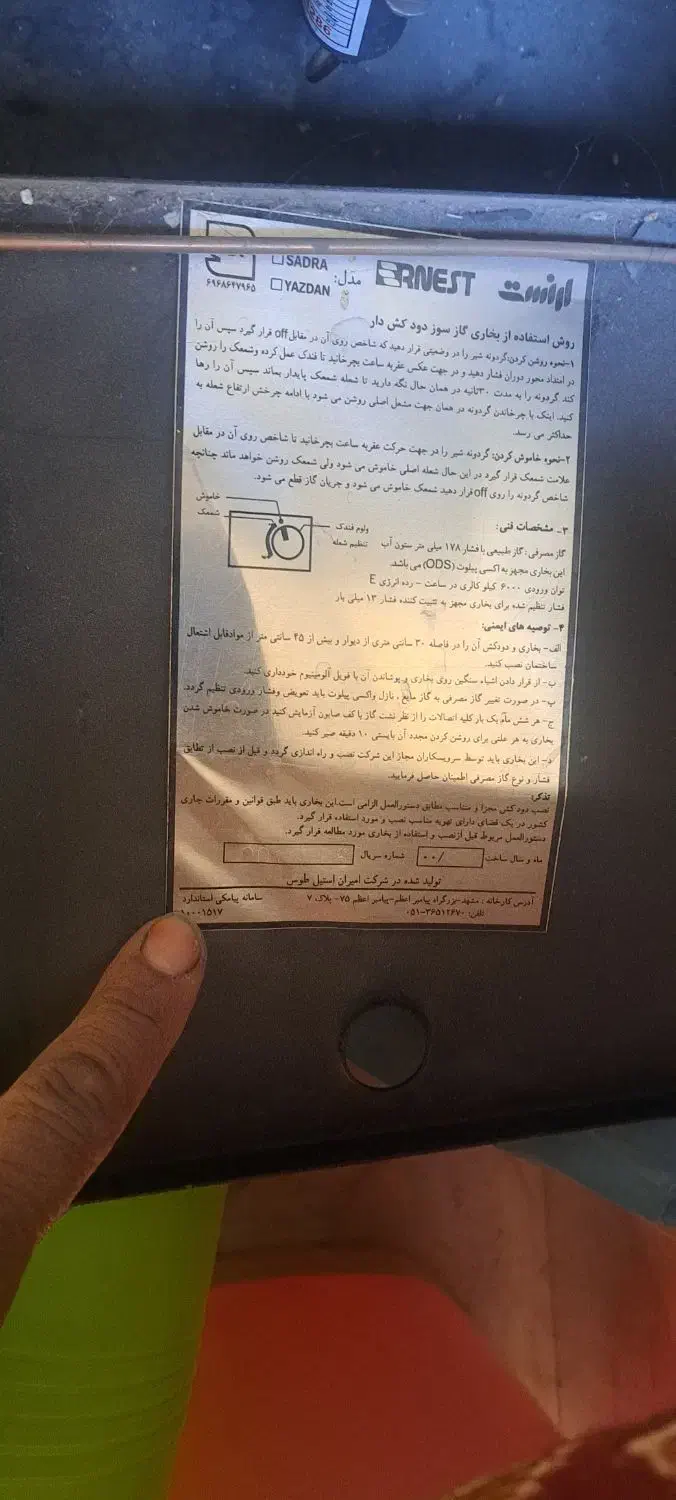 286
ارنست
ERNEST
مدل:
SADRA
YAZDAN
۶۹۶۸۶۴۷۹۶۵
روش استفاده از بخاری گاز سوز دود کش دار
۱-نحوه روشن کردن:گردونه شیر را در وضعیتی قرار دهید که شاخص روی آن در مقابل off قرار گیرد سپس آن را
در امتداد محور دوران فشار دهید و در جهت عکس عقربه ساعت بچرخانید تا فندک عمل کرده وشمعک را روشن
کند گردونه را به مدت ۳۰ثانیه در همان حال نگه دارید تا شعله شمعک پایدار بماند سپس آن را رها
کنید. اینک با چرخاندن گردونه در همان جهت مشعل اصلی روشن می شود با ادامه چرخش ارتفاع شعله به
حداکثر می رسد.
۲-نحوه خاموش کردن: گردونه شیر را در جهت حرکت عقربه ساعت بچرخانید تا شاخص روی آن در مقابل
علامت شمعک قرار گیرد در این حال شعله اصلی خاموش می شود ولی شمعک روشن خواهد ماند چنانچه
شاخص گردونه را روی off قرار دهید شمعک خاموش می شود و جریان گاز قطع می شود.
خاموش
شمعک
ولوم فندک
تنظیم شعله
۳- مشخصات فنی:
گاز مصرفی : گاز طبیعی با فشار ۱۷۸ میلی متر ستون آب
این بخاری مجهز به اکسی پیلوت (ODS) می باشد.
توان ورودی ۶۰۰۰ کیلو کالری در ساعت - رده انرژی E
فشار تنظیم شده برای بخاری مجهز به تثبیت کننده فشار ۱۳ میلی بار
۴- توصیه های ایمنی:
الف- بخاری و دودکش آن را در فاصله ۳۰ سانتی متری از دیوار و بیش از ۴۵ سانتی متر از موادقابل اشتعال
ساختمان نصب کنید.
ب- از قرار دادن اشیاء سنگین روی بخاری و پوشاندن آن با فویل آلومینیوم خودداری کنید.
پ- در صورت تغییر گاز مصرفی به گاز مایع ، نازل واکسی پیلوت باید تعویض وفشار ورودی تنظیم گردد.
ج- هر شش ماه یک بار کلیه اتصالات را از نظر نشت گاز با کف صابون آزمایش کنید در صورت خاموش شدن
بخاری به هر علتی برای روشن کردن مجدد آن بایستی ۱۰ دقیقه صبر کنید.
د- این بخاری باید توسط سرویسکاران مجاز این شرکت نصب و راه اندازی گردد و قبل از نصب از تطابق
فشار و نوع گاز مصرفی اطمینان حاصل فرمایید.
تذکر:
نصب دود کش مجزا و متناسب مطابق دستورالعمل الزامی است.این بخاری باید طبق قوانین و مقررات جاری
کشور در یک فضای دارای تهویه مناسب نصب و مورد استفاده قرار گیرد.
دستورالعمل مربوط قبل ازنصب و استفاده از بخاری مورد مطالعه قرار گیرد.
ماه و سال ساخت
۰۰/
شماره سریال
تولید شده در شرکت امیران استیل طوس
آدرس کارخانه : مشهد-بزرگراه پیامبر اعظم-پیامبر اعظم ۷۵- پلاک ۷
تلفن: ۳۶۵۱۲۶۷۰-۰۵۱
سامانه پیامکی استاندارد
۱۰۰۰۱۵۱۷